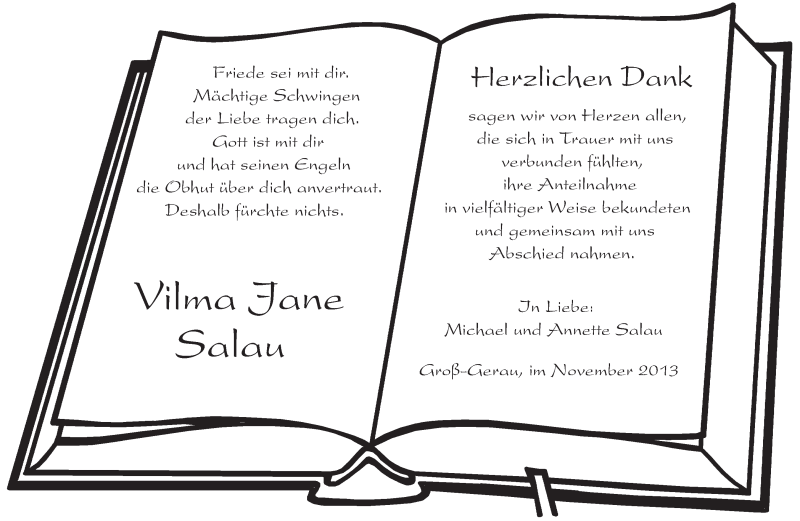 Friede sei mit dir.
Mächtige Schwingen
der Liebe tragen dich.
Gott ist mit dir
und hat seinen Engeln
die Obhut über dich anvertraut.
Deshalb fürchte nichts.
Vilma Jane
Salau
Herzlichen Dank
sagen wir von Herzen allen,
die sich in Trauer mit uns
verbunden fühlten,
ihre Anteilnahme
in vielfältiger Weise bekundeten
und gemeinsam mit uns
Abschied nahmen.
In Liebe:
Michael und Annette Salau
Groß-Gerau, im November 2013